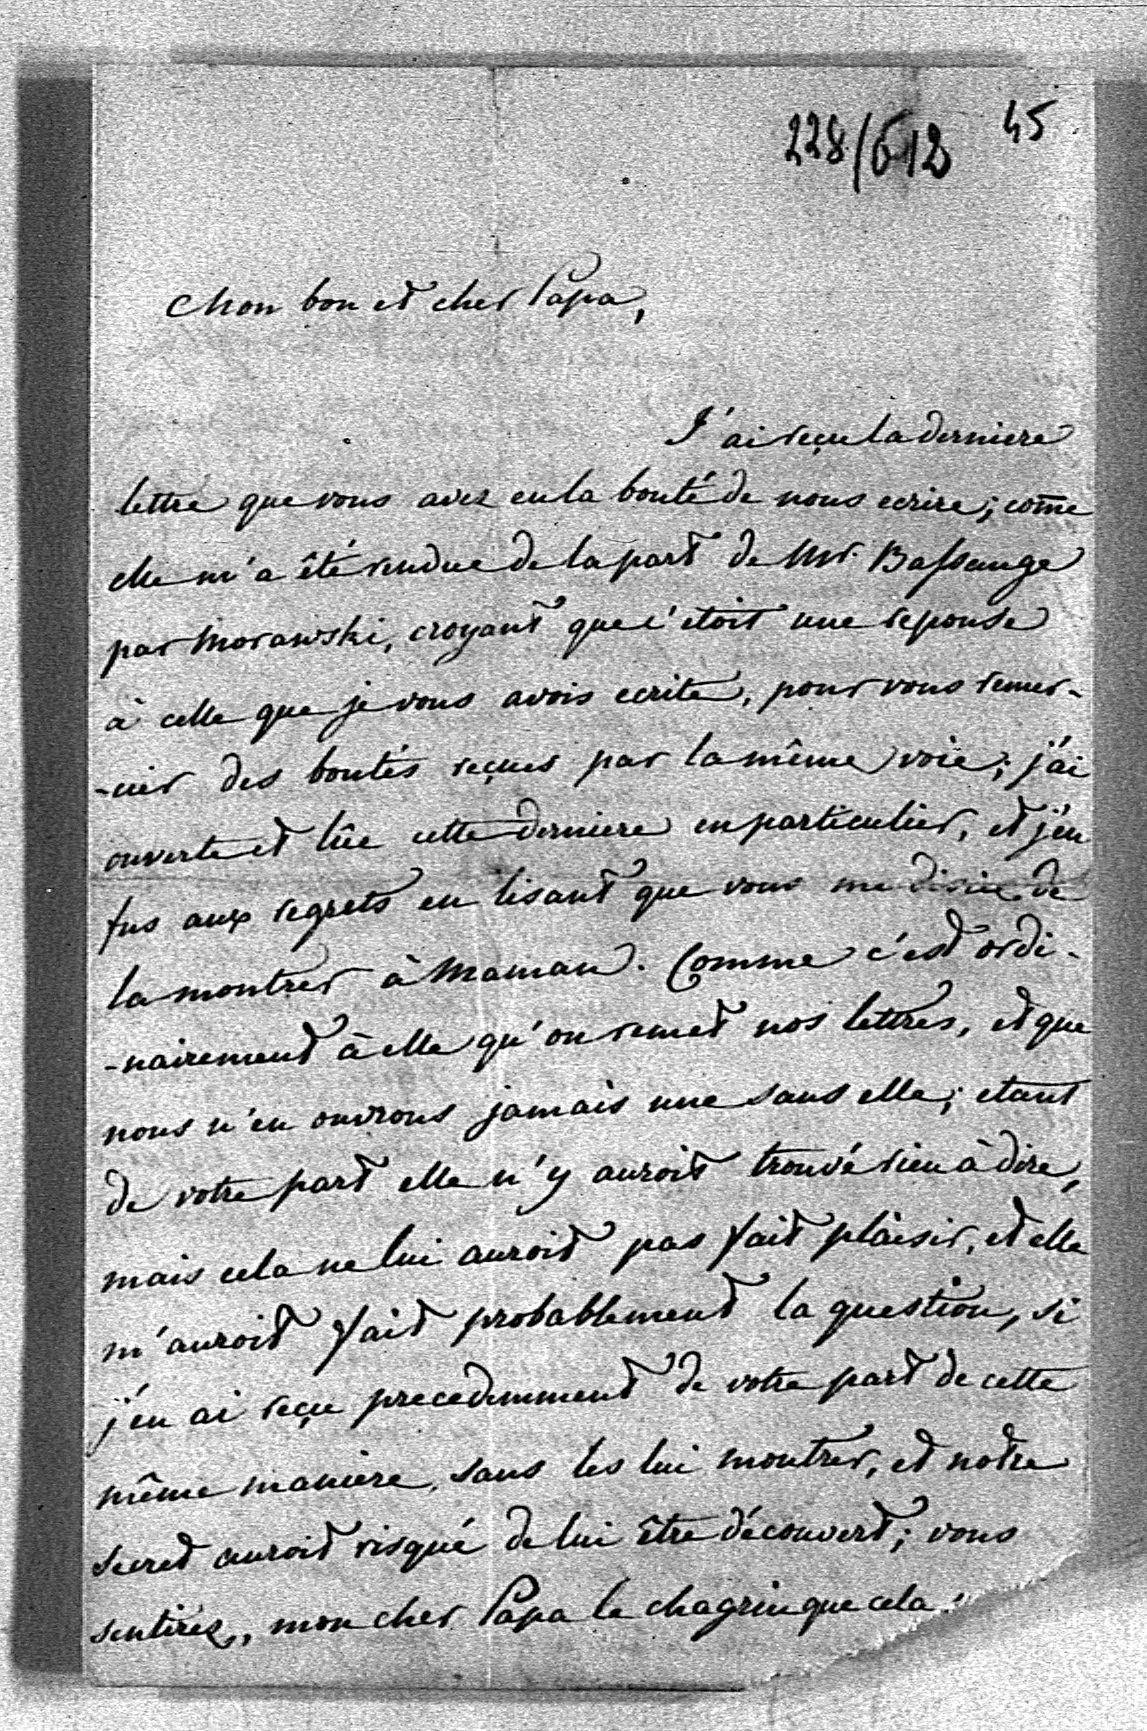 45
228/612
Mon bon et cher Papa,
J'ai reçu la derniere
lettre que vous avez eu la bonté de nous ecrire; com̄e
elle m'a êté rendue de la part de Mr. Bassange
par Morawski, croyant que c'etoit une reponse
à celle que je vous avois ecrite, pour vous remer-
-cier des bontés reçues par la même voie; j'ai
ouverte et lûe cette derniere en particulier, et j'en
fus aux regrets en lisant que vous me disiez de
la montrer à Maman. Comme c'est ordi-
-nairement à elle qu'on remet nos lettres, et que
nous n'en ouvrons jamais une sans elle; etant
de votre part elle n'y auroit trouvé rien à dire,
mais cela ne lui auroit pas fait plaisir, et elle
m'auroit fait probablement la question, si
j'en ai reçu precedemment de votre part de cette
même maniere, sans les lui montrer, et notre
secret auroit risqué de lui être découvert; vous
sentirez, mon cher Papa le chagrin que cela